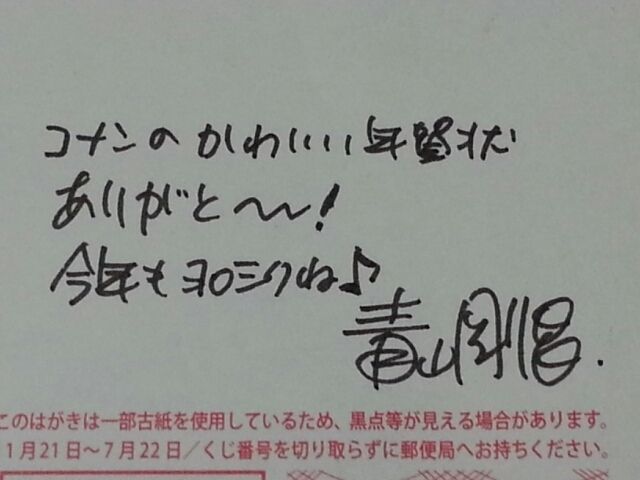 コナンのかわいい年賀状
ありがと〜〜!
今年もヨロシクね♪
青山剛昌.
このはがきは一部古紙を使用しているため、黒点等が見える場合があります。
1月21日〜7月22日/くじ番号を切り取らずに郵便局へお持ちください。